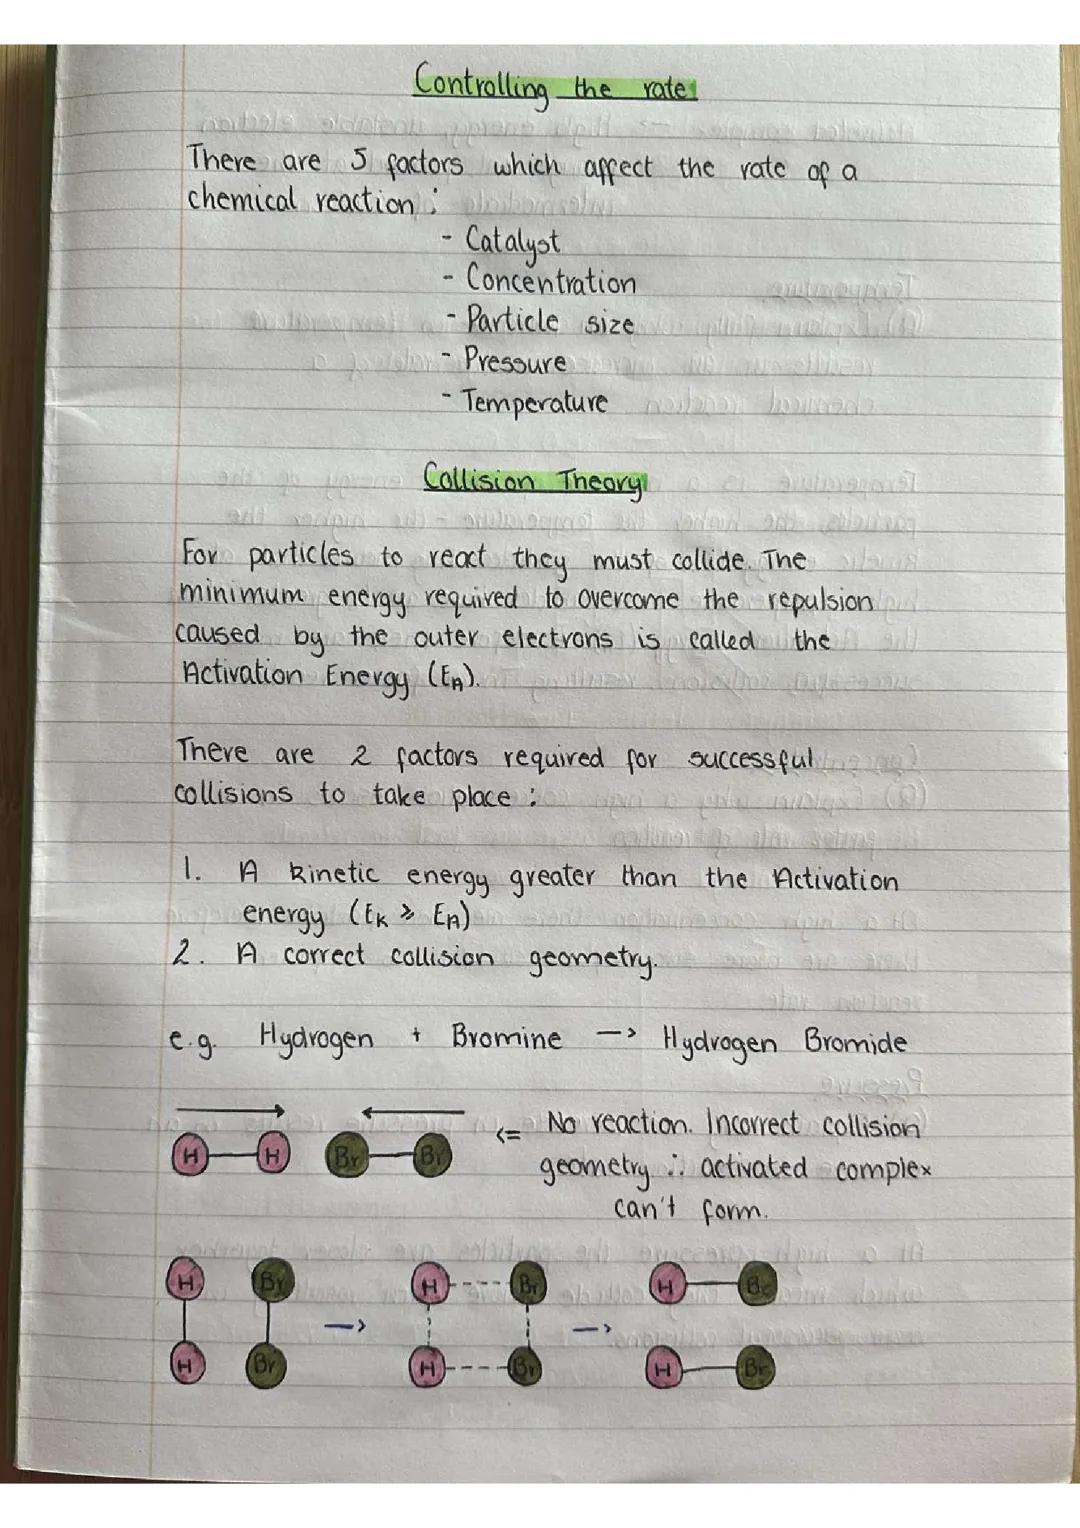 Controlling the rate
There are 5 factors which affect the rate of a
chemical reaction :
- Catalyst
- Concentration
- Particle size
- Pressure
- Temperature
Collision Theory
For particles to react they must collide. The
minimum energy required to overcome the repulsion
caused by the outer electrons is called the
Activation Energy (EA).
There are 2 factors required for successful
collisions to take place :
1. A kinetic energy greater than the Activation
energy (EK ⩾ EA)
2. A correct collision geometry.
e.g. Hydrogen + Bromine -> Hydrogen Bromide
H H Br Br <= No reaction. Incorrect collision
geometry ∴ activated complex
can't form.
H Br -> H Br -> H Br
H Br H Br H Br